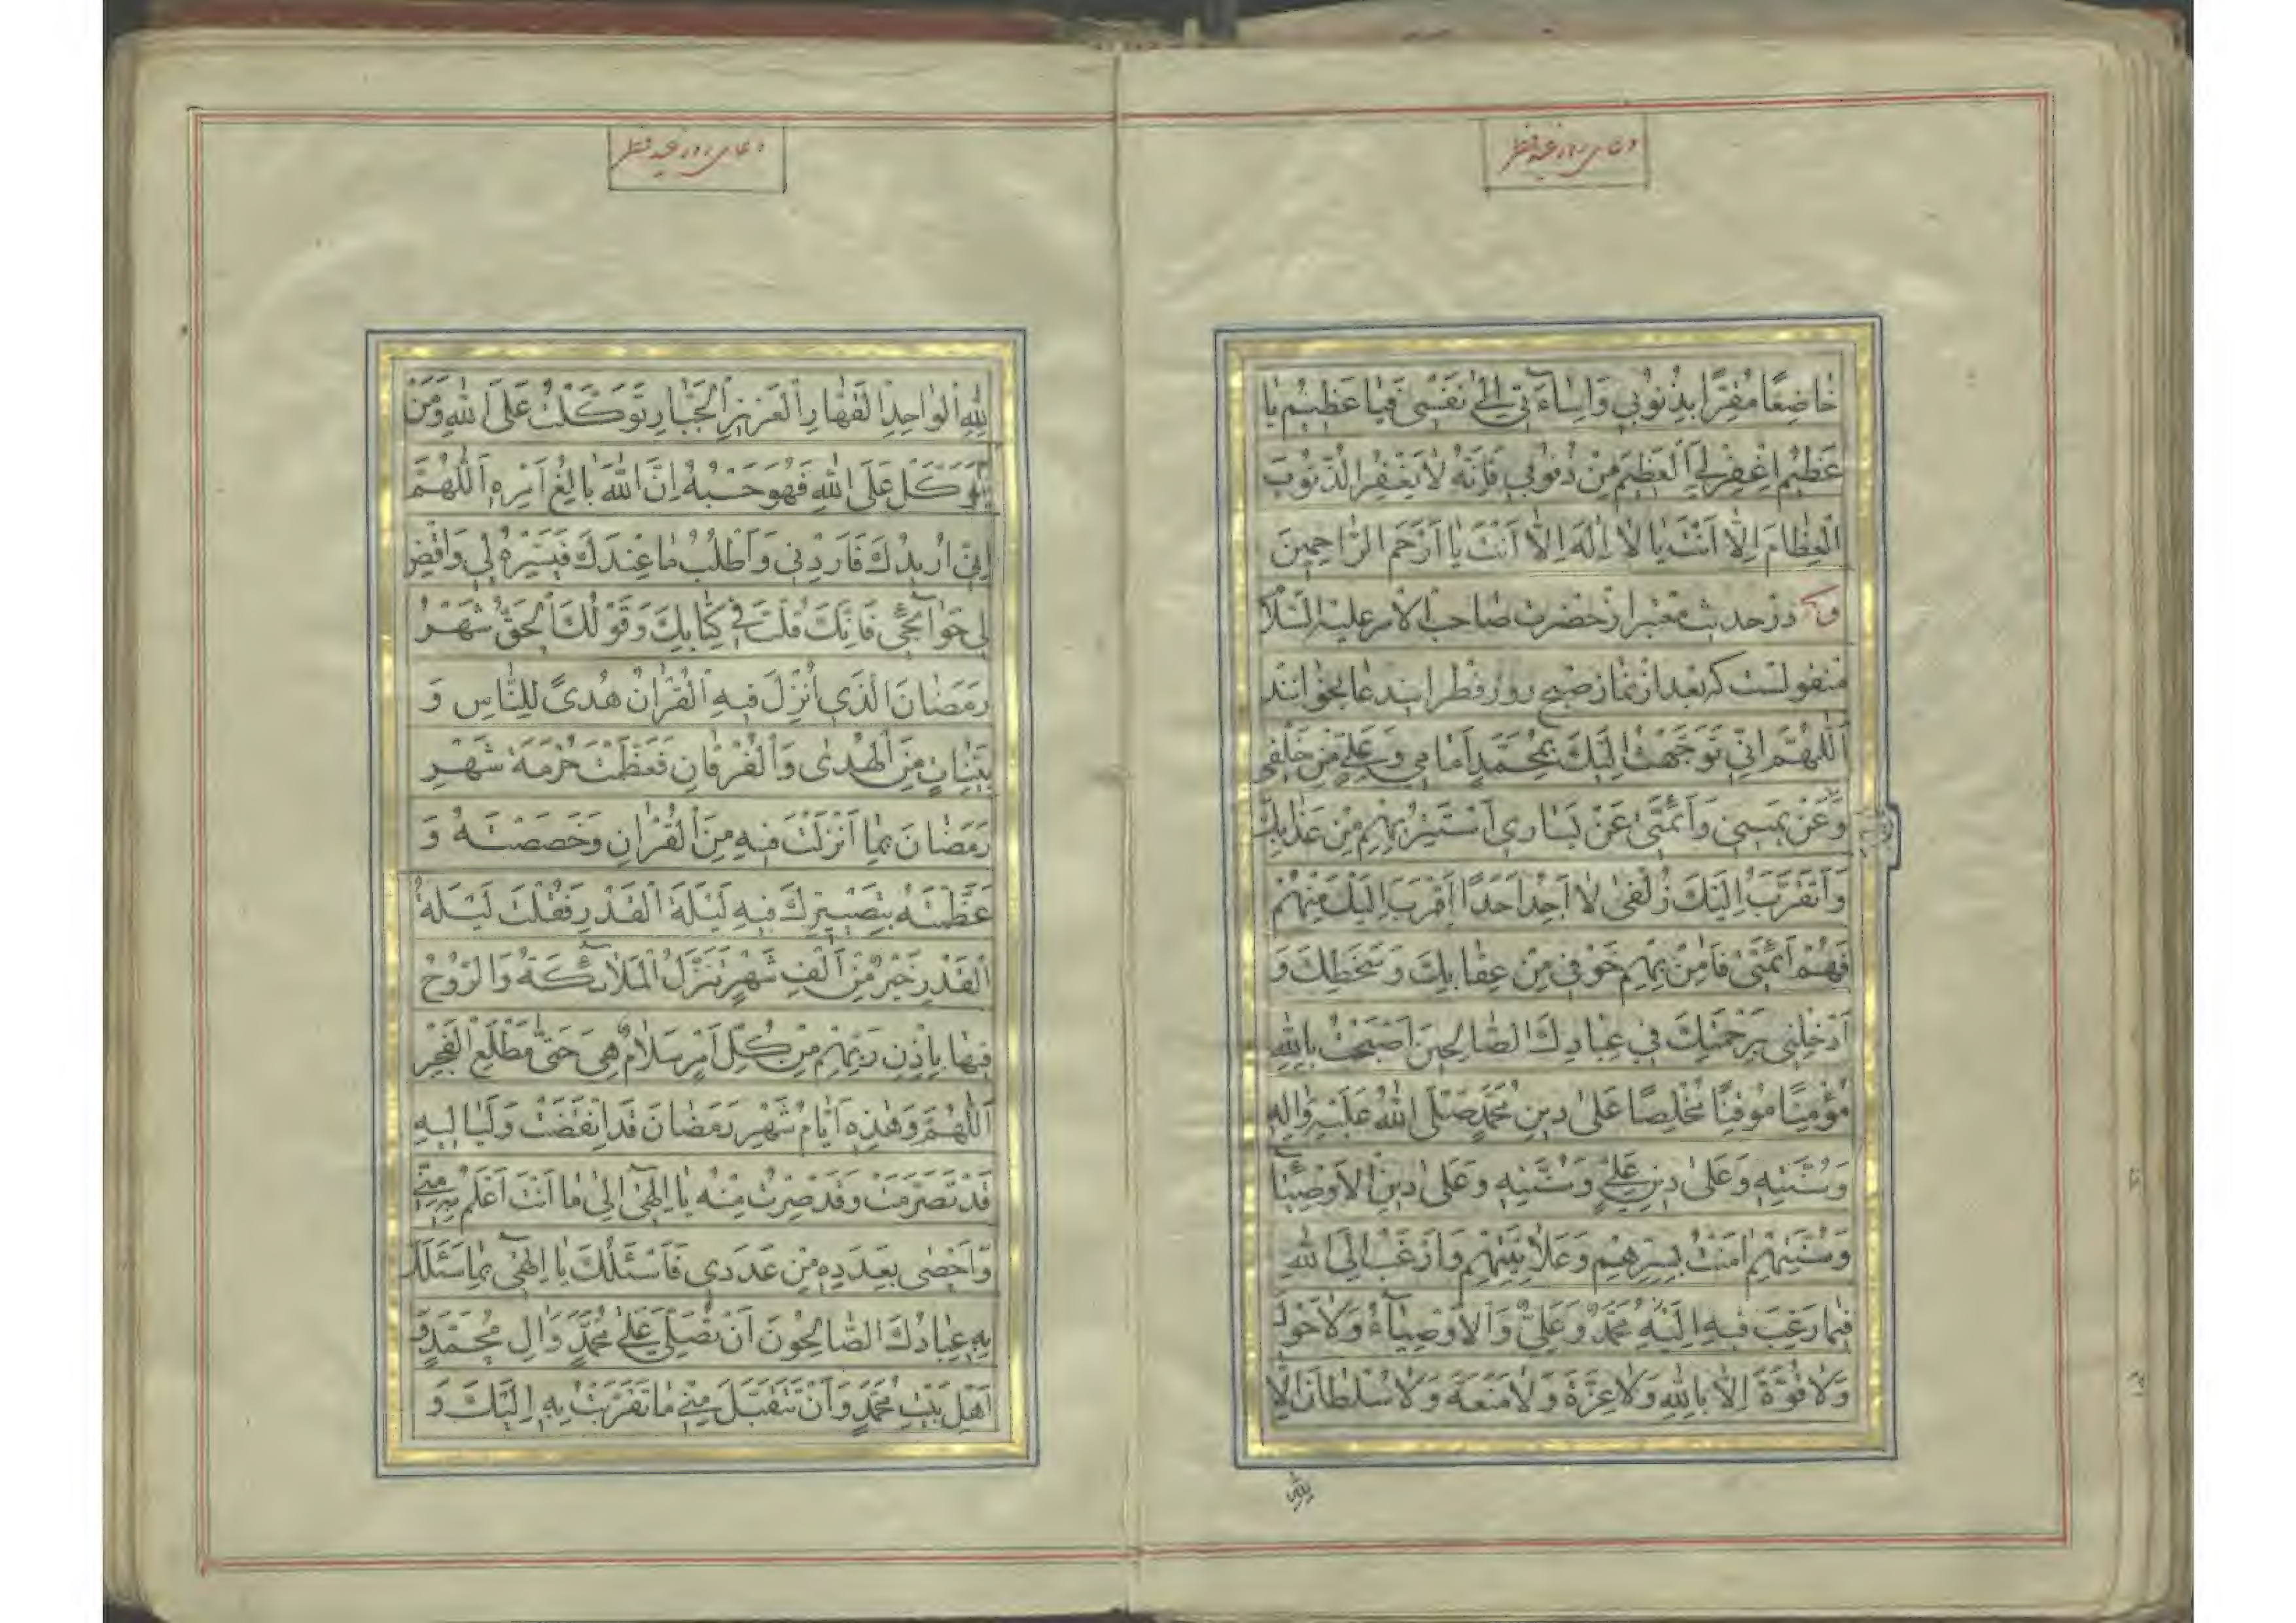 دعای روز عید فطر
خاضِعًا مُقِرًّا بِذُنُوبي وَاِساءَتي اِلىٰ نَفْسي فَيا عَظيمُ يا
عَظيمُ اِغْفِرْ لِيَ الْعَظيمَ مِنْ ذُنُوبي فَاِنَّهُ لا يَغْفِرُ الذُّنُوبَ
الْعِظامَ اِلّا اَنْتَ يا لا اِلٰهَ اِلّا اَنْتَ يا اَرْحَمَ الرّاحِمينَ
و در حدیث معتبر از حضرت صاحب الامر علیه السلا
منقولست که بعد از نماز صبح روز فطر ایندعا بخوانند
اَللّٰهُمَّ اِنّي تَوَجَّهْتُ اِلَيْكَ بِمُحَمَّدٍ اَمامي وَعَلِيٍّ مِنْ خَلْفي
وَعَنْ يَميني وَاَئِمَّتي عَنْ يَساري اَسْتَتِرُ بِهِمْ مِنْ عَذابِكَ
وَاَتَقَرَّبُ اِلَيْكَ زُلْفىٰ لا اَجِدُ اَحَدًا اَقْرَبَ اِلَيْكَ مِنْهُمْ
فَهُمْ اَئِمَّتي فَاٰمِنْ بِهِمْ خَوْفي مِنْ عِقابِكَ وَسَخَطِكَ وَ
اَدْخِلْني بِرَحْمَتِكَ في عِبادِكَ الصّالِحينَ اَصْبَحْتُ بِاللّٰهِ
مُؤْمِنًا مُوقِنًا مُخْلِصًا عَلىٰ دينِ مُحَمَّدٍ صَلَّى اللّٰهُ عَلَيْهِ وَاٰلِهِ
وَسُنَّتِهِ وَعَلىٰ دينِ عَلِيٍّ وَسُنَّتِهِ وَعَلىٰ دينِ الْاَوْصِيآءِ
وَسُنَّتِهِمْ اٰمَنْتُ بِسِرِّهِمْ وَعَلانِيَتِهِمْ وَاَرْغَبُ اِلَى اللّٰهِ
فيما رَغِبَ فيهِ اِلَيْهِ مُحَمَّدٌ وَعَلِيٌّ وَالْاَوْصِيآءُ وَلا حَوْلَ
وَلا قُوَّةَ اِلّا بِاللّٰهِ وَلا عِزَّةَ وَلا مَنْعَةَ وَلا سُلْطانَ اِلّا
لِلّٰهِ
دعای روز عید فطر
لِلّٰهِ الْواحِدِ الْقَهّارِ الْعَزيزِ الْجَبّارِ تَوَكَّلْتُ عَلَى اللّٰهِ وَمَنْ
يَتَوَكَّلْ عَلَى اللّٰهِ فَهُوَ حَسْبُهُ اِنَّ اللّٰهَ بالِغُ اَمْرِهِ اَللّٰهُمَّ
اِنّي اُريدُكَ فَاَرِدْني وَاَطْلُبُ ما عِنْدَكَ فَيَسِّرْهُ لي وَاقْضِ
لي حَوآئِجي فَاِنَّكَ قُلْتَ في كِتابِكَ وَقَوْلُكَ الْحَقُّ شَهْرُ
رَمَضانَ الَّذي اُنْزِلَ فيهِ الْقُرْاٰنُ هُدًى لِلنّاسِ وَ
بَيِّناتٍ مِنَ الْهُدىٰ وَالْفُرْقانِ فَعَظَّمْتَ حُرْمَةَ شَهْرِ
رَمَضانَ بِما اَنْزَلْتَ فيهِ مِنَ الْقُرْاٰنِ وَخَصَصْتَهُ وَ
عَظَّمْتَهُ بِتَصْييرِكَ فيهِ لَيْلَةَ الْقَدْرِ فَقُلْتَ لَيْلَةُ
الْقَدْرِ خَيْرٌ مِنْ اَلْفِ شَهْرٍ تَنَزَّلُ الْمَلآئِكَةُ وَالرُّوحُ
فيها بِاِذْنِ رَبِّهِمْ مِنْ كُلِّ اَمْرٍ سَلامٌ هِيَ حَتّىٰ مَطْلَعِ الْفَجْرِ
اَللّٰهُمَّ وَهٰذِهِ اَيّامُ شَهْرِ رَمَضانَ قَدِ انْقَضَتْ وَلَياليهِ
قَدْ تَصَرَّمَتْ وَقَدْ صِرْتُ مِنْهُ يا اِلٰهي اِلىٰ ما اَنْتَ اَعْلَمُ بِهِ مِنّي
وَاَحْصىٰ بِعَدَدِهِ مِنْ عَدَدي فَاَسْئَلُكَ يا اِلٰهي بِما سَئَلَكَ
بِهِ عِبادُكَ الصّالِحُونَ اَنْ تُصَلِّيَ عَلىٰ مُحَمَّدٍ وَاٰلِ مُحَمَّدٍ وَ
اَهْلِ بَيْتِ مُحَمَّدٍ وَاَنْ تَتَقَبَّلَ مِنّي ما تَقَرَّبْتُ بِهِ اِلَيْكَ وَ